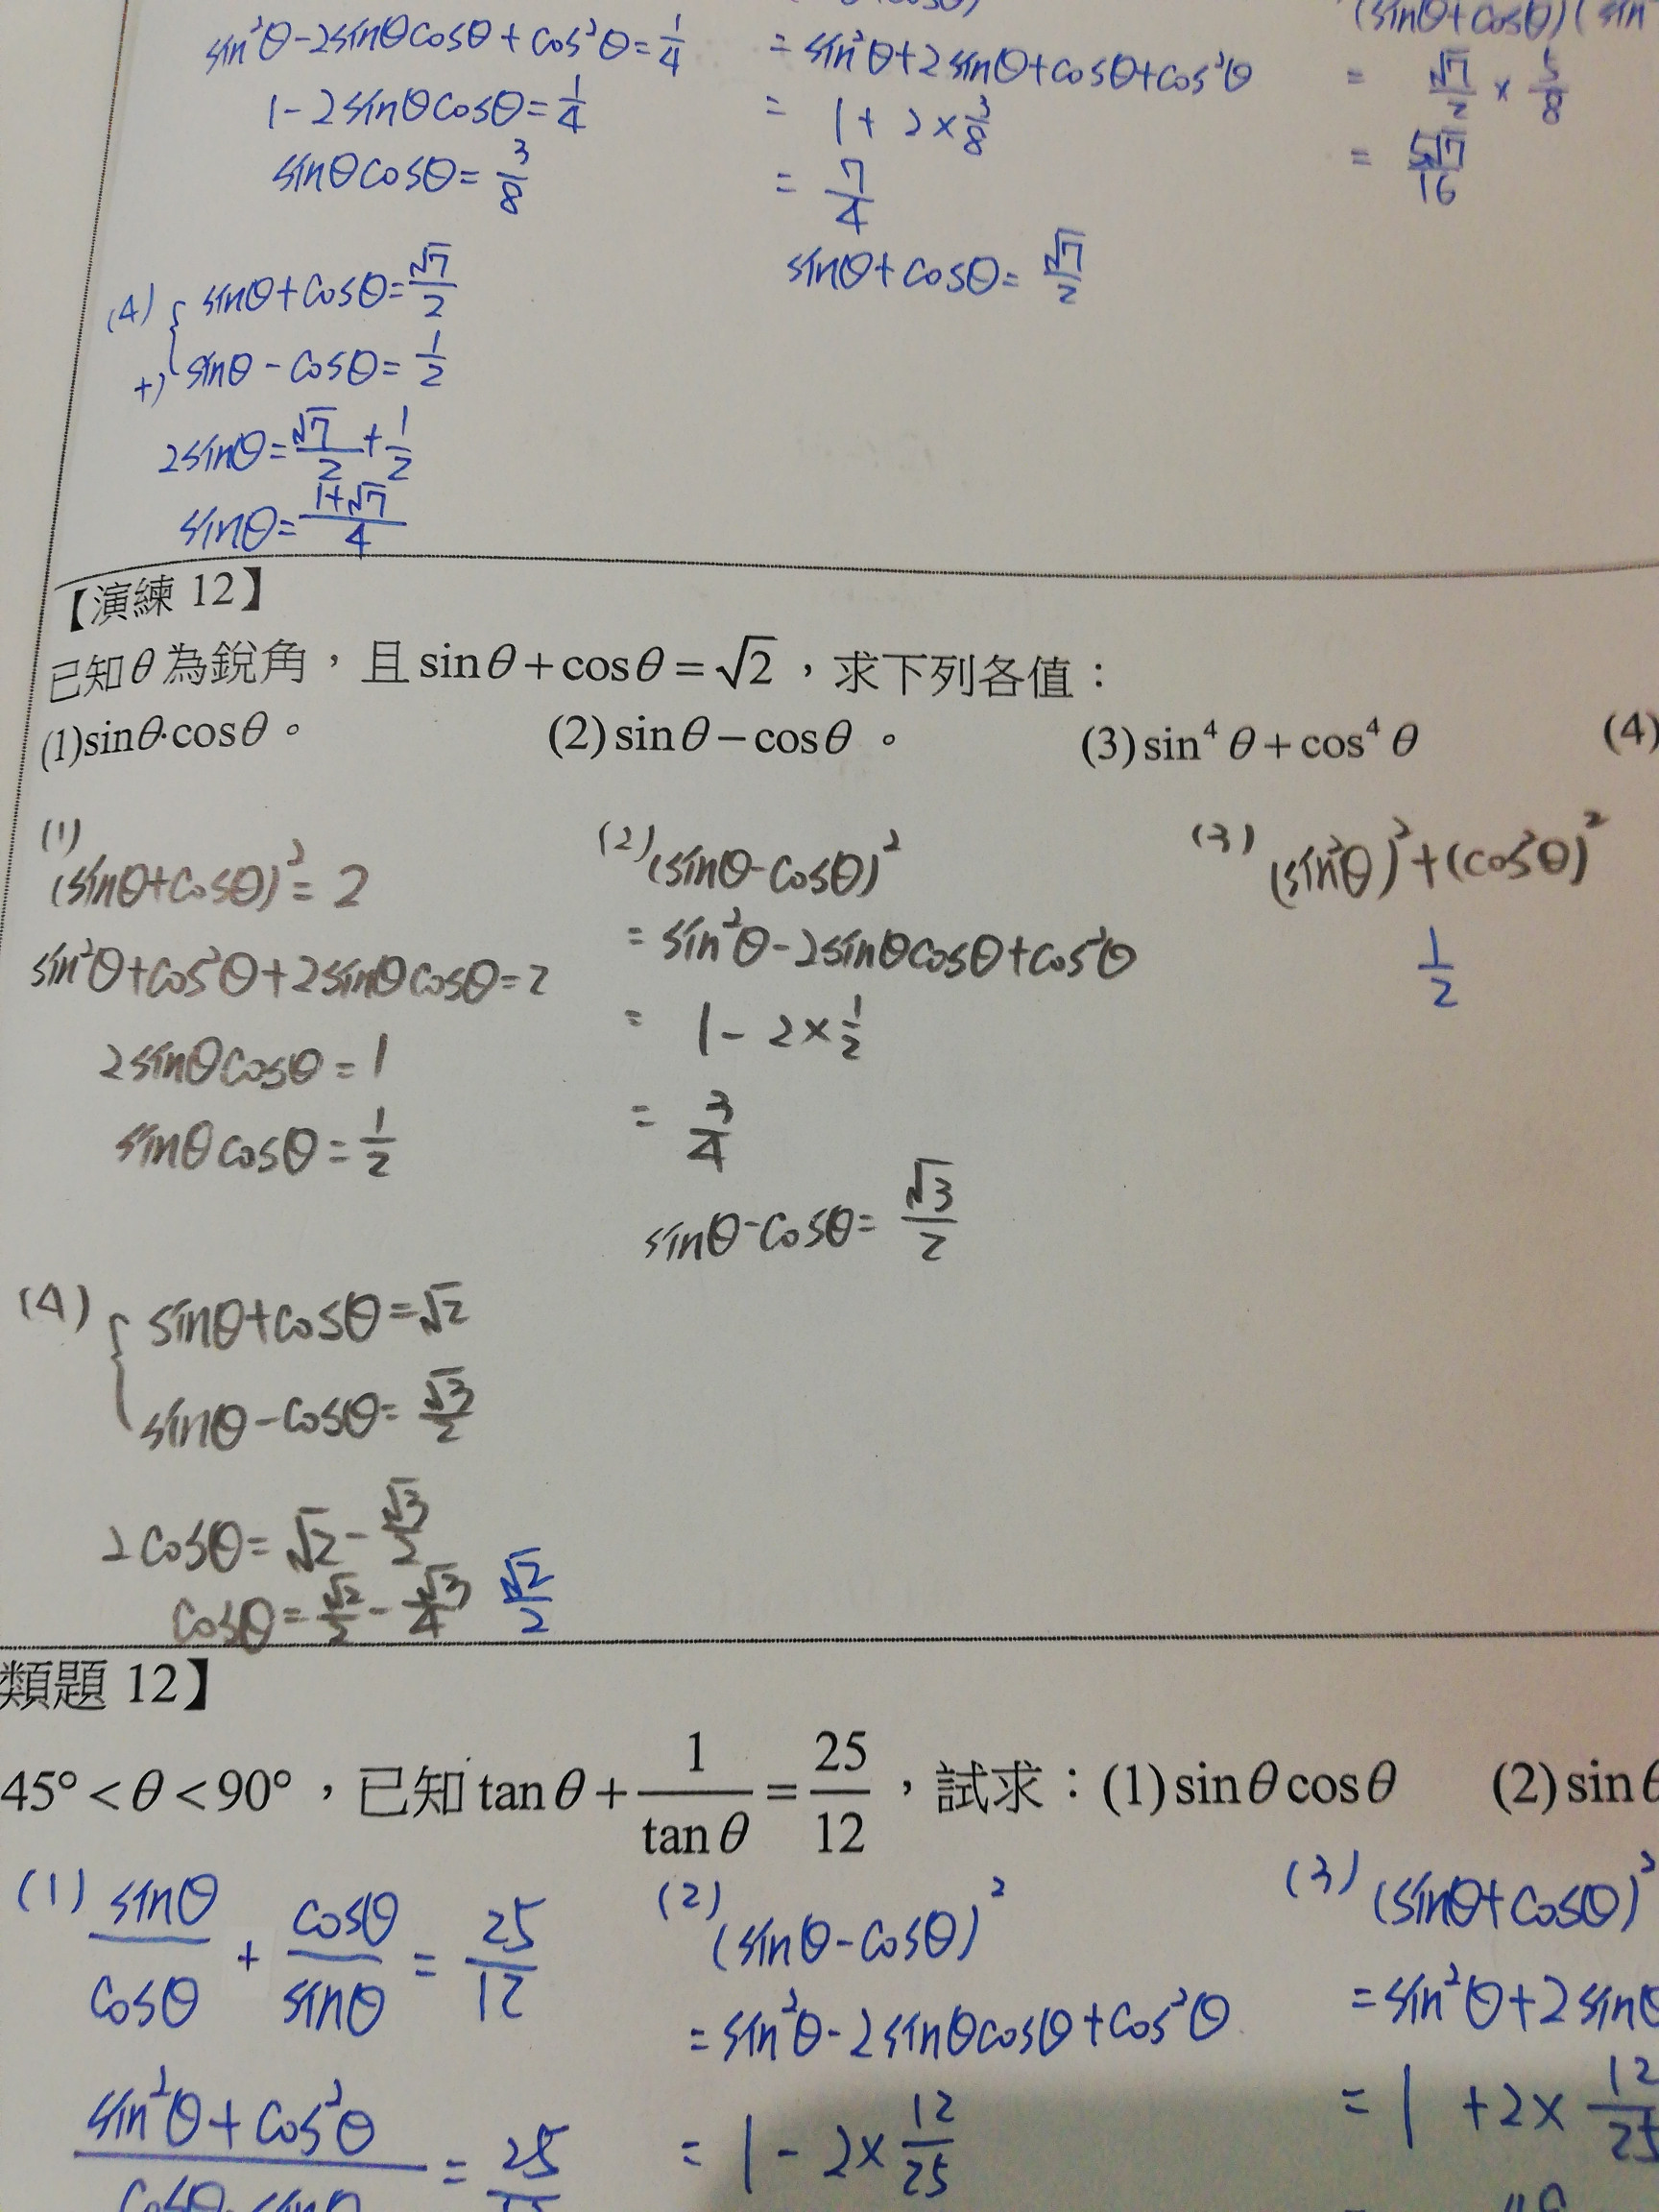 sin²θ-2sinθcosθ+cos²θ=1/4
1-2sinθcosθ=1/4
sinθcosθ=3/8
= sin²θ+2sinθ+cosθ+cos²θ
= 1+2×3/8
= 7/4
sinθ+cosθ=√7/2
(sinθ+cosθ)(sin
= √7/2 × 5/8
= 5√7/16
(4) { sinθ+cosθ=√7/2
+) sinθ-cosθ=1/2
2sinθ=√7/2+1/2
sinθ=(1+√7)/4
【演練 12】
已知θ為銳角，且 sinθ+cosθ=√2，求下列各值：
(1)sinθ·cosθ。 (2)sinθ−cosθ。 (3)sin⁴θ+cos⁴θ (4)
(1)
(sinθ+cosθ)²=2
sin²θ+cos²θ+2sinθcosθ=2
2sinθcosθ=1
sinθcosθ=1/2
(2) (sinθ-cosθ)²
= sin²θ-2sinθcosθ+cos²θ
= 1-2×1/2
= 3/4
sinθ-cosθ=√3/2
(3) (sin²θ)²+(cos²θ)²
1/2
(4) { sinθ+cosθ=√2
sinθ-cosθ=√3/2
2cosθ=√2-√3/2
cosθ=√2/2-√3/4 √2/2
類題 12】
45°<θ<90°，已知 tanθ+1/tanθ=25/12，試求：(1)sinθcosθ (2)sinθ
(1) sinθ/cosθ + cosθ/sinθ = 25/12
(sin²θ+cos²θ)/cosθ·sinθ = 25
(2)
(sinθ-cosθ)²
=sin²θ-2sinθcosθ+cos²θ
= 1-2×12/25
(3) (sinθ+cosθ)²
=sin²θ+2sinθ
= 1+2×12/25